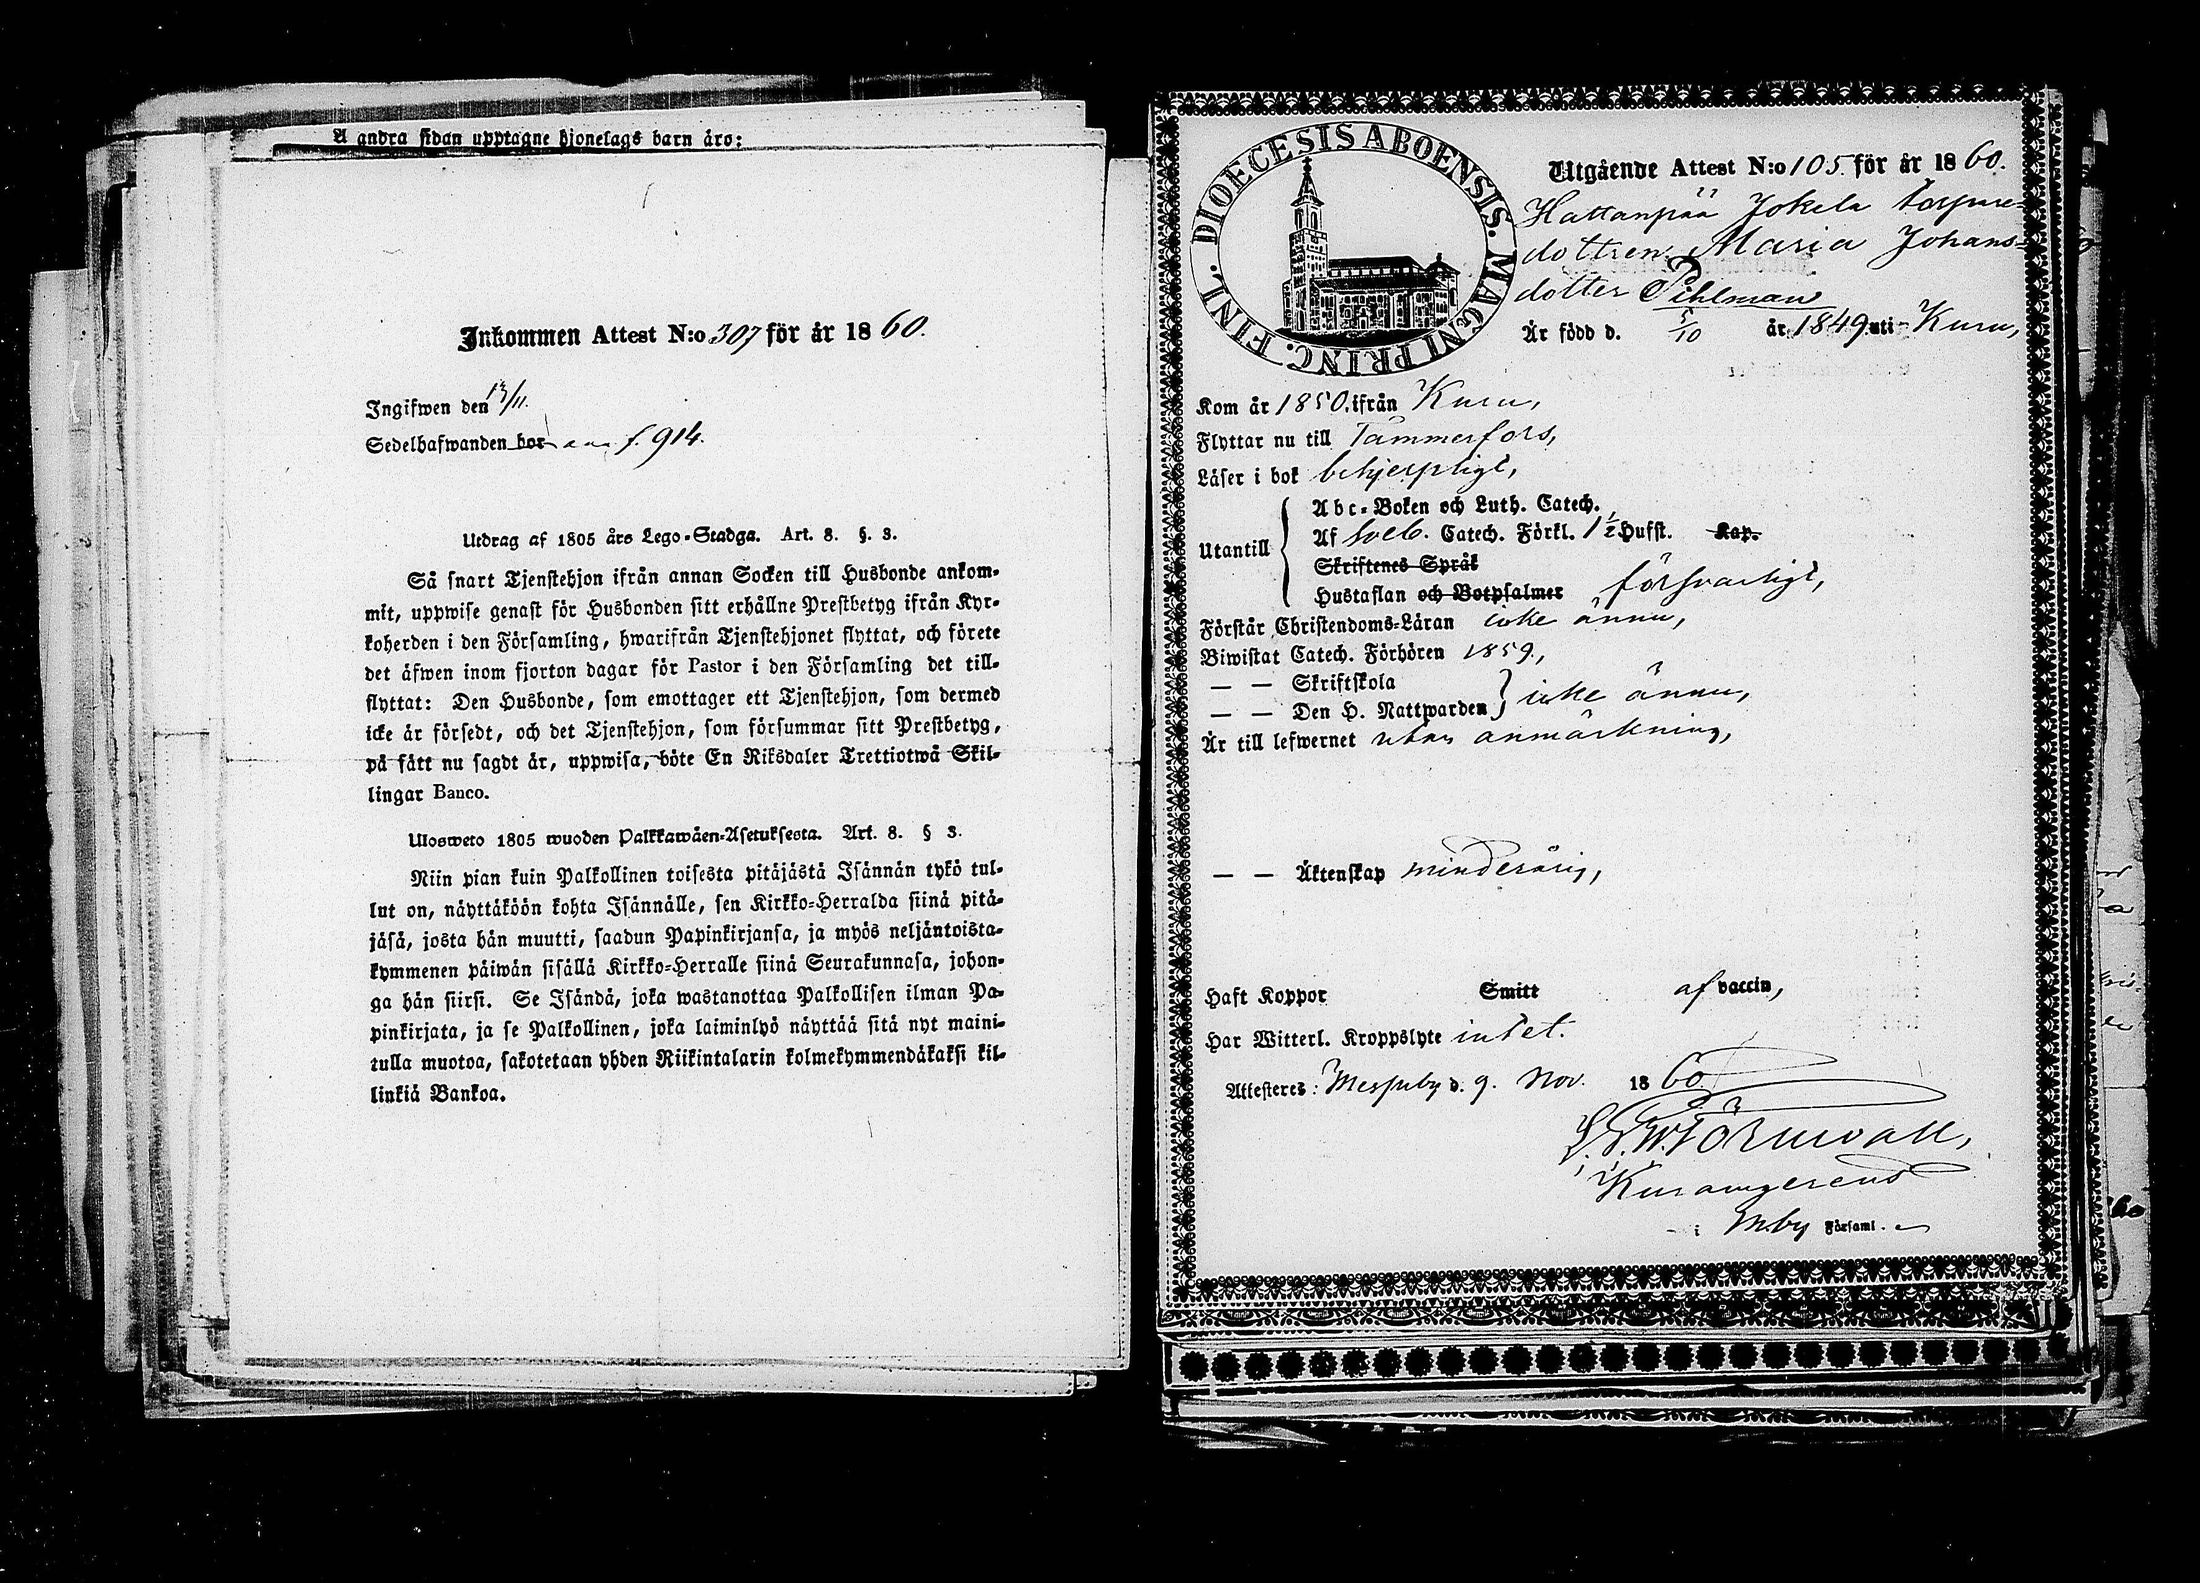 A andra sidan upptagne hjonelags barn äro:
Inkommen Attest N:o 307 för år 1860.
Ingifwen den 13/11.
Sedelhafwanden bor f. 914.
Utdrag af 1805 års Lego-Stadga. Art. 8. §. 3.
Så snart Tjenstehjon ifrån annan Socken till Husbonde ankom-
mit, uppwise genast för Husbonden sitt erhållne Prestbetyg ifrån Kyr-
koherden i den Församling, hwarifrån Tjenstehjonet flyttat, och förete
det äfwen inom fjorton dagar för Pastor i den Församling det till-
flyttat: Den Husbonde, som emottager ett Tjenstehjon, som dermed
icke är försedt, och det Tjenstehjon, som försummar sitt Prestbetyg,
på sätt nu sagdt är, uppwisa, böte En Riksdaler Trettiotwå Skil-
lingar Banco.
Ulosweto 1805 wuoden Palkkawäen-Asetuksesta. Art. 8. § 3.
Niin pian kuin Palkollinen toisesta pitäjästä Isännän tykö tul-
lut on, näyttäköön kohta Isännälle, sen Kirkko-Herralda siinä pitä-
jäsä, josta hän muutti, saadun Papinkirjansa, ja myös neljäntoista-
kymmenen päiwän sisällä Kirkko-Herralle siinä Seurakunnasa, johon-
ga hän siirsi. Se Isändä, joka wastanottaa Palkollisen ilman Pa-
pinkirjata, ja se Palkollinen, joka laiminlyö näyttää sitä nyt maini-
tulla muotoa, sakotetaan yhden Riikintalarin kolmekymmendäkaksi kil-
linkiä Bankoa.
FINL. DIOECESIS ABOENSIS. MAGNI PRINC.
Utgående Attest N:o 105. för år 1860.
Hattanpää Jokela torpare-
dottren Maria Johans-
dotter Pihlman
Är född d. 5/10 år 1849 uti Kuru,
Kom år 1850, ifrån Kuru,
Flyttar nu till Tammerfors,
Läser i bok behjelpligt,
Utantill
Abc-Boken och Luth. Catech.
Af Sveb. Catech. Förkl. 1 1/2 Hufst. Kap.
Skriftenes Språk
Hustaflan och Botpsalmer försvarligt,
Förstår Christendoms-Läran icke ännu,
Biwistat Catech. Förhören 1859,
— — Skriftskola
— — Den H. Nattwarden icke ännu,
Är till lefwernet utan anmärkning,
— — Äktenskap minderårig,
Haft Koppor Smitt af vaccin,
Har Witterl. Kroppslyte intet.
Attesteres: Messuby d. 9. Nov. 1860
Törnwall,
i Mby Församl.